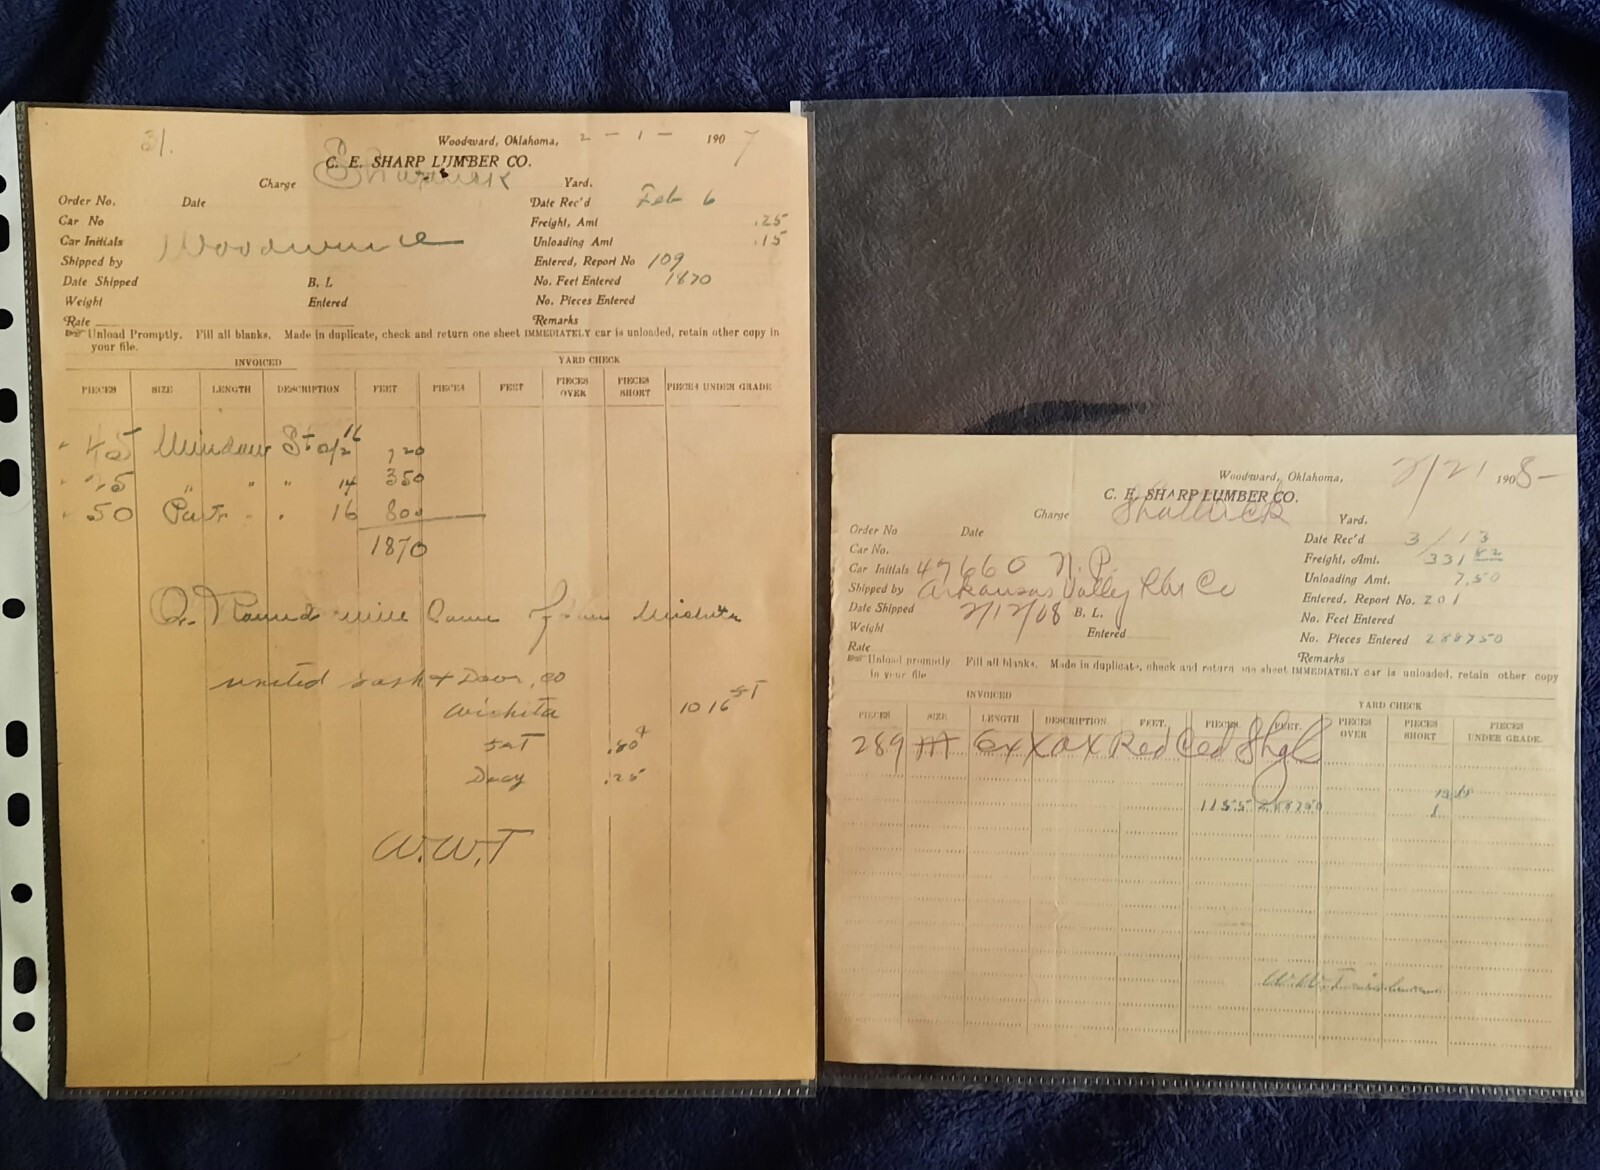 31.
Woodward, Oklahoma, 2 - 1 - 1907
C. E. SHARP LUMBER CO.
Charge Shattuck Yard.
Order No. Date Date Rec'd Feb 6
Car No Freight, Amt .25
Car Initials Unloading Amt .15
Shipped by Entered, Report No 109
Date Shipped B. L No. Feet Entered 1870
Weight Entered No. Pieces Entered
Rate Remarks
Unload Promptly. Fill all blanks. Made in duplicate, check and return one sheet IMMEDIATELY car is unloaded, retain other copy in
your file.
INVOICED YARD CHECK
PIECES SIZE LENGTH DESCRIPTION FEET PIECES FEET PIECES OVER PIECES SHORT PIECES UNDER GRADE
45 Window Stop 16 720
25 " " " 14 350
50 16 800
1870
Round from Wichita
united sash & Door, co
Wichita 10 16
.80
.25
W.W.T
Woodward, Oklahoma, 2/21 1908-
C. E. SHARP LUMBER CO.
Charge Shattuck Yard.
Order No Date Date Rec'd 3/13
Car No. Freight, Amt. 331 82
Car Initials 47660 N. P. Unloading Amt. 7.50
Shipped by Arkansas Valley Lbr Co Entered, Report No. 201
Date Shipped 2/12/08 B. L. No. Feet Entered
Weight Entered No. Pieces Entered 288750
Rate Remarks
Unload promptly Fill all blanks. Made in duplicate, check and return one sheet IMMEDIATELY car is unloaded, retain other copy
in your file
INVOICED YARD CHECK
PIECES SIZE LENGTH DESCRIPTION. FEET. PIECES. FEET. PIECES OVER PIECES SHORT PIECES UNDER GRADE.
289 M 6x XAX Red Ced Shgl
1155 288750
1